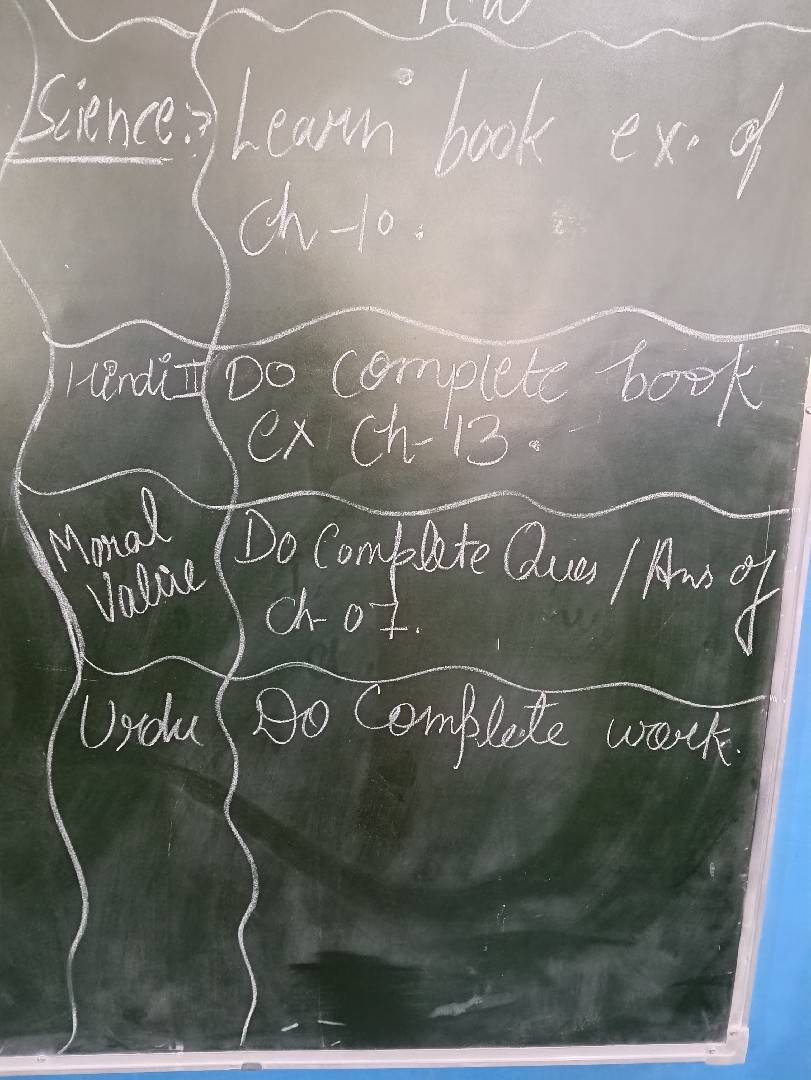 H.W
Science:→ Learn book ex. of
Ch-10.
Hindi II Do complete book
ex Ch-13.
Moral Value Do Complete Ques/Ans of
Ch-07.
Urdu Do Complete work.